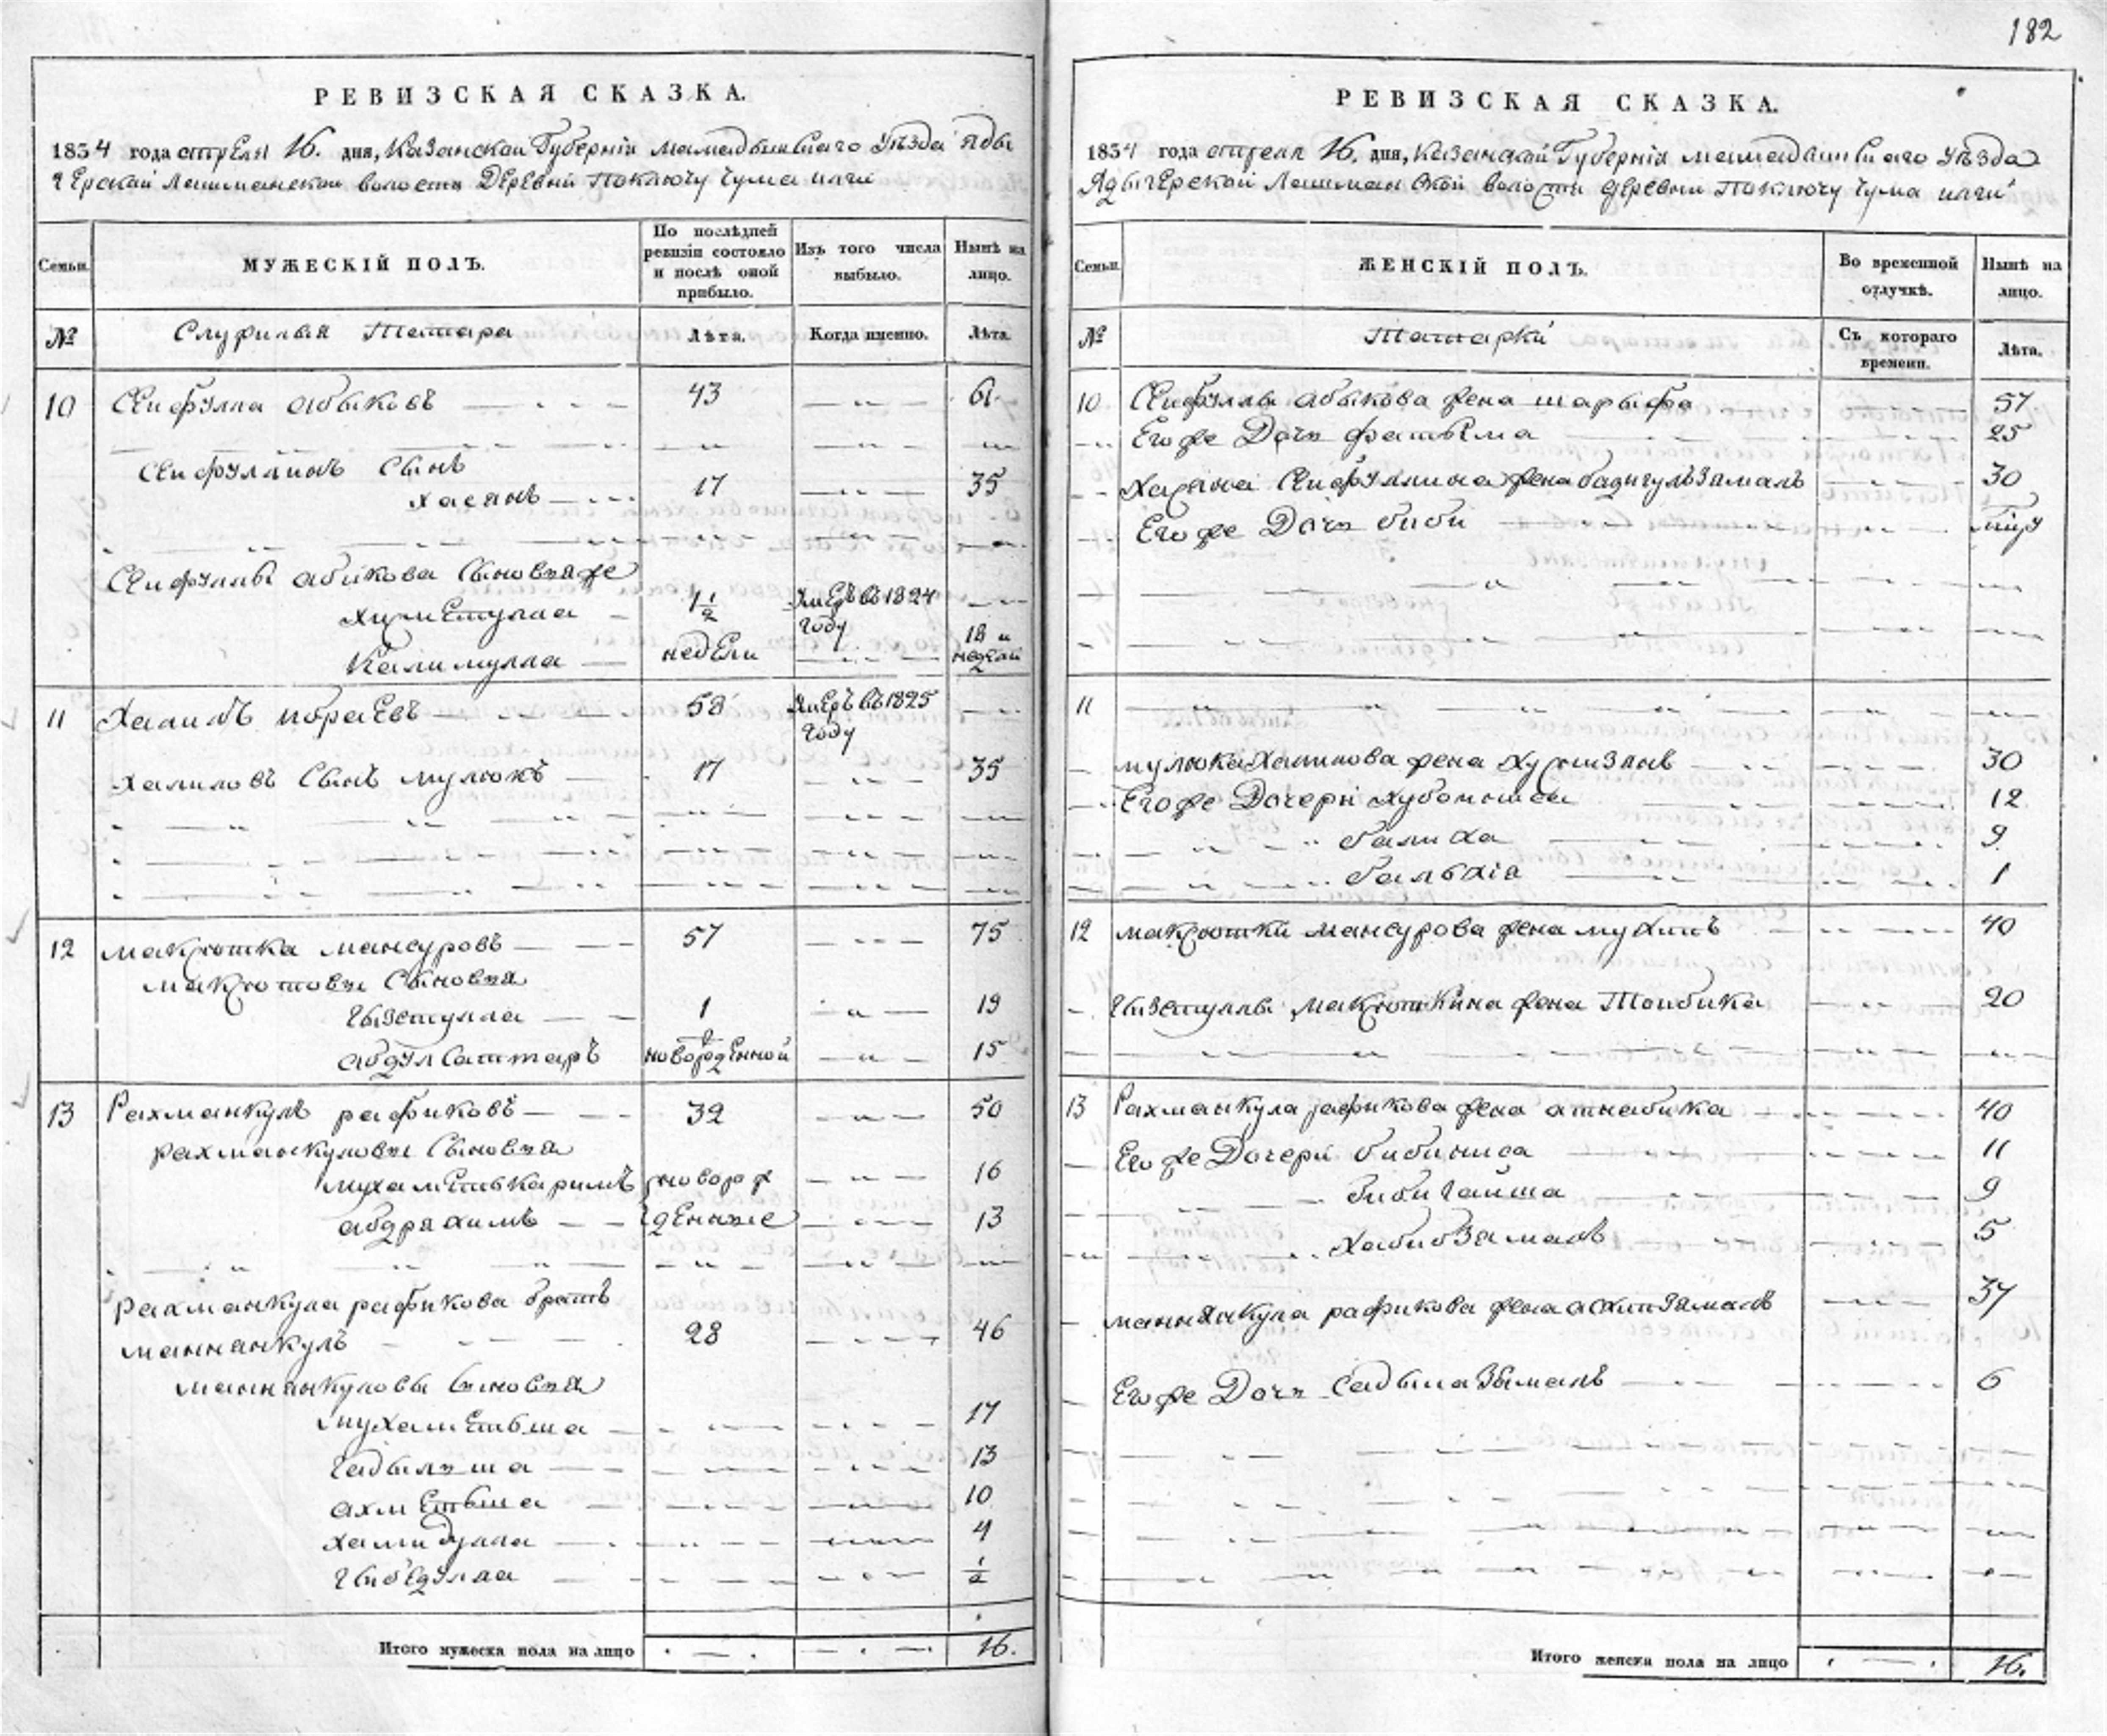 182
РЕВИЗСКАЯ СКАЗКА.
1834 года апреля 16. дня, Казанской Губерніи Мамадышскаго Уѣзда Яды
герской Лашманской волости Деревни Поключу Чума илги
Семьи.
МУЖЕСКІЙ ПОЛЪ.
По послѣдней ревизіи состояло и послѣ оной прибыло.
Изъ того числа выбыло.
Нынѣ на лицо.
№
Служилыя Татара
Лѣта.
Когда именно.
Лѣта.
10 Сейфулла Абыковъ 43 61
Сейфуллинъ Сынъ
Хасянъ 17 35
Сейфуллы Абыкова Сыновья же
1 1/2 Умеръ въ 1824 году
Калимулла недели 18 и недели
11 Халилъ 58 Умеръ въ 1825 году
Халиловъ Сынъ Мулюкъ 17 35
12 Максютка Мансуровъ 57 75
Максютовы Сыновья
Гызетулла 1 19
Абдулсаттаръ новорожденной 15
13 Рахманкулъ Рафиковъ 32 50
Рахманкуловы Сыновья
Мухаметькаримъ новорож 16
Абдряхимъ денные 13
Рахманкула Рафикова братъ
Маннанкулъ 28 46
Маннанкуловы Сыновья
Мухаметьша 17
Гадыльша 13
Ахметьша 10
Хамидулла 4
Гибедулла 1/2
Итого мужеска пола на лицо 16.
РЕВИЗСКАЯ СКАЗКА.
1834 года апреля 16. дня, Казанской Губернія Мамадышскаго Уѣзда
Ядыгерской Лашманской волости деревни Поключу Чума илги
Семьи.
ЖЕНСКІЙ ПОЛЪ.
Во временной отлучкѣ.
Нынѣ на лицо.
№
Татарки
Съ котораго времени.
Лѣта.
10 Сейфуллы Абыкова жена Шарыфа 57
Его же Дочь Фатыма 25
Хасяна Сейфуллина жена Бадигульзямалъ 30
Его же Дочь Биби
11
Мулюка Халилова жена 30
Его же Дочери 12
Галиха 9
1
12 Максютки Мансурова жена 40
Гызетуллы Максюткина жена Тоибика 20
13 Рахманкула Рафикова жена Атнабика 40
Его же Дочери Бибиниса 11
Бибигайша 9
Хабибзямалъ 5
Маннанкула Рафикова жена 37
Его же Дочь 6
Итого женска пола на лицо 16.